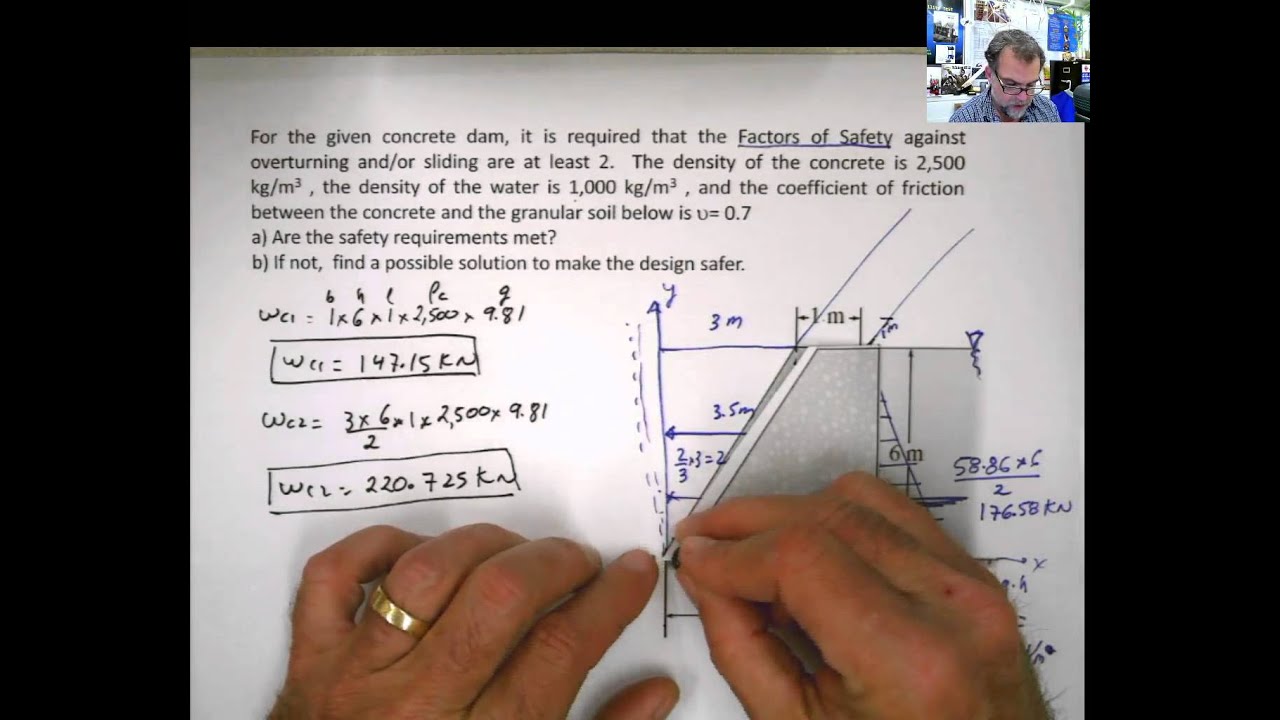 For the given concrete dam, it is required that the Factors of Safety against
overturning and/or sliding are at least 2. The density of the concrete is 2,500
kg/m³ , the density of the water is 1,000 kg/m³ , and the coefficient of friction
between the concrete and the granular soil below is υ= 0.7
a) Are the safety requirements met?
b) If not, find a possible solution to make the design safer.
b h l ρc g
wc1 = 1×6×1×2,500×9.81
wc1 = 147.15 KN
wc2 = 3×6/2 ×1×2,500×9.81
wc2 = 220.725 KN
y
3 m
1 m
1m
3.5m
2/3×3=2
6 m
58.86×6
2
176.58 KN
x